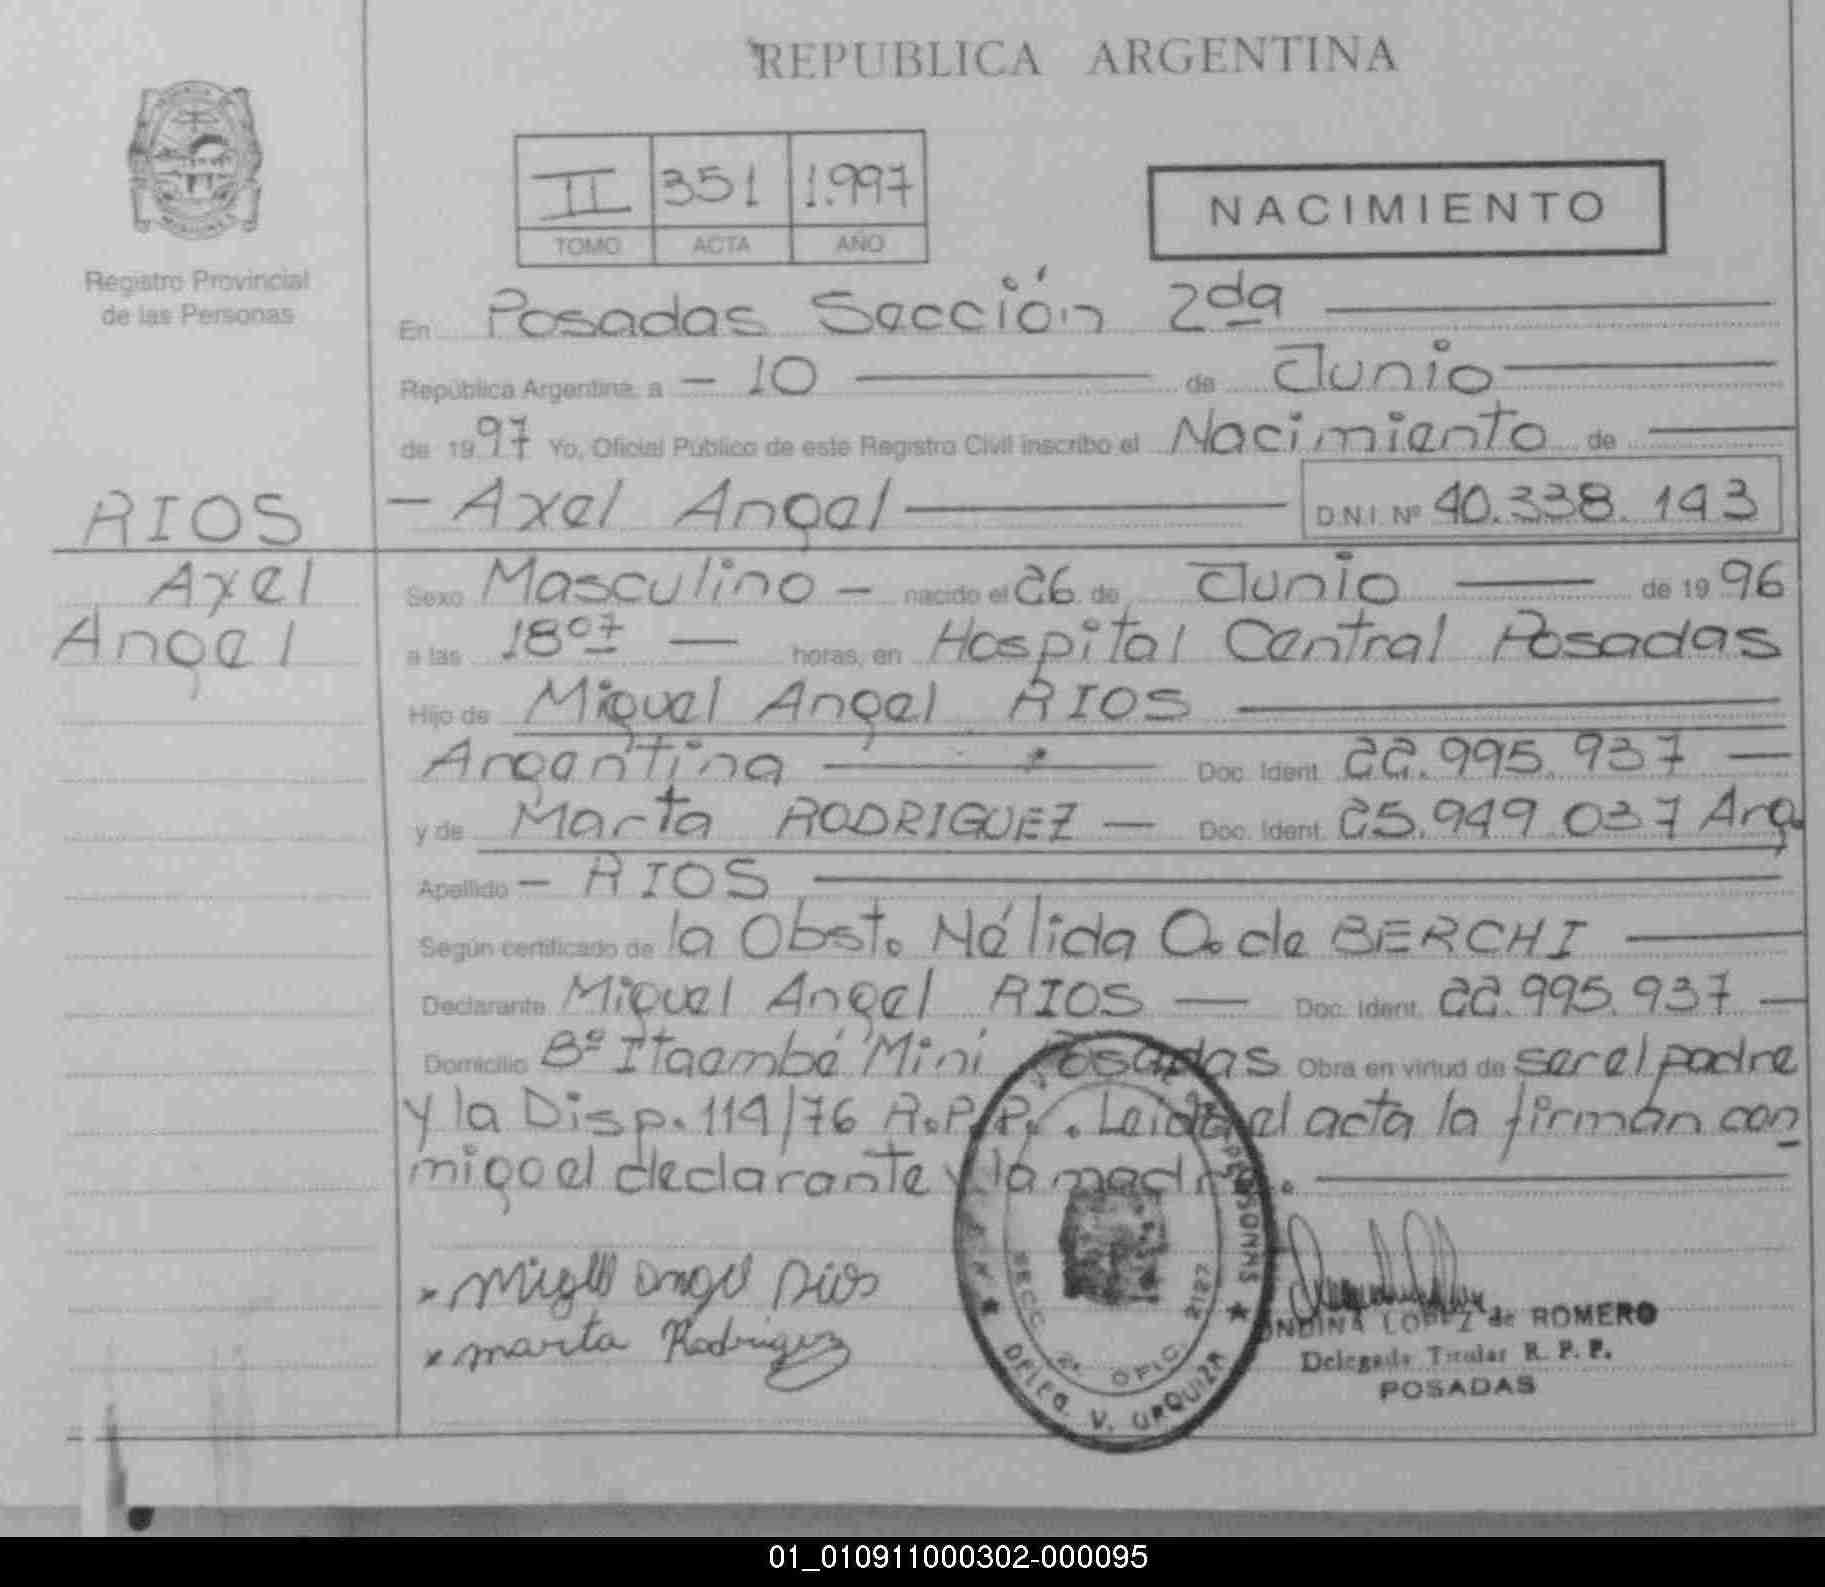 REPUBLICA ARGENTINA
II 351 1.997
TOMO ACTA AÑO
NACIMIENTO
Registro Provincial
de las Personas
En Posadas Sección 2da
República Argentina, a - 10 de Junio
de 1997 Yo, Oficial Público de este Registro Civil inscribo el Nacimiento de
RIOS
- Axel Angel D.N.I. Nº 40.338.143
Axel
Angel
Sexo Masculino - nacido el 26 de Junio de 1996
a las 18 07 horas, en Hospital Central Posadas
Hijo de Miguel Angel RIOS
Argentina Doc. Ident. 22.995.937
y de Marta RODRIGUEZ - Doc. Ident. 25.949.037 Arg.
Apellido - RIOS
Según certificado de la Obst. Nélida O. de BERCHI
Declarante Miguel Angel RIOS Doc. Ident. 22.995.937
Domicilio Bº Itaembé Miní Posadas Obra en virtud de ser el padre
y la Disp. 119/76 R.P.P. . Leida el acta la firman con
migo el declarante y la madre.
Miguel angel Rios
marta Rodriguez
PERSONAS
SECC 2ª OFIC. 2127
DELEG. V. URQUIZA
ONDINA LOPEZ de ROMERO
Delegada Titular R. P. P.
POSADAS
01_010911000302-000095